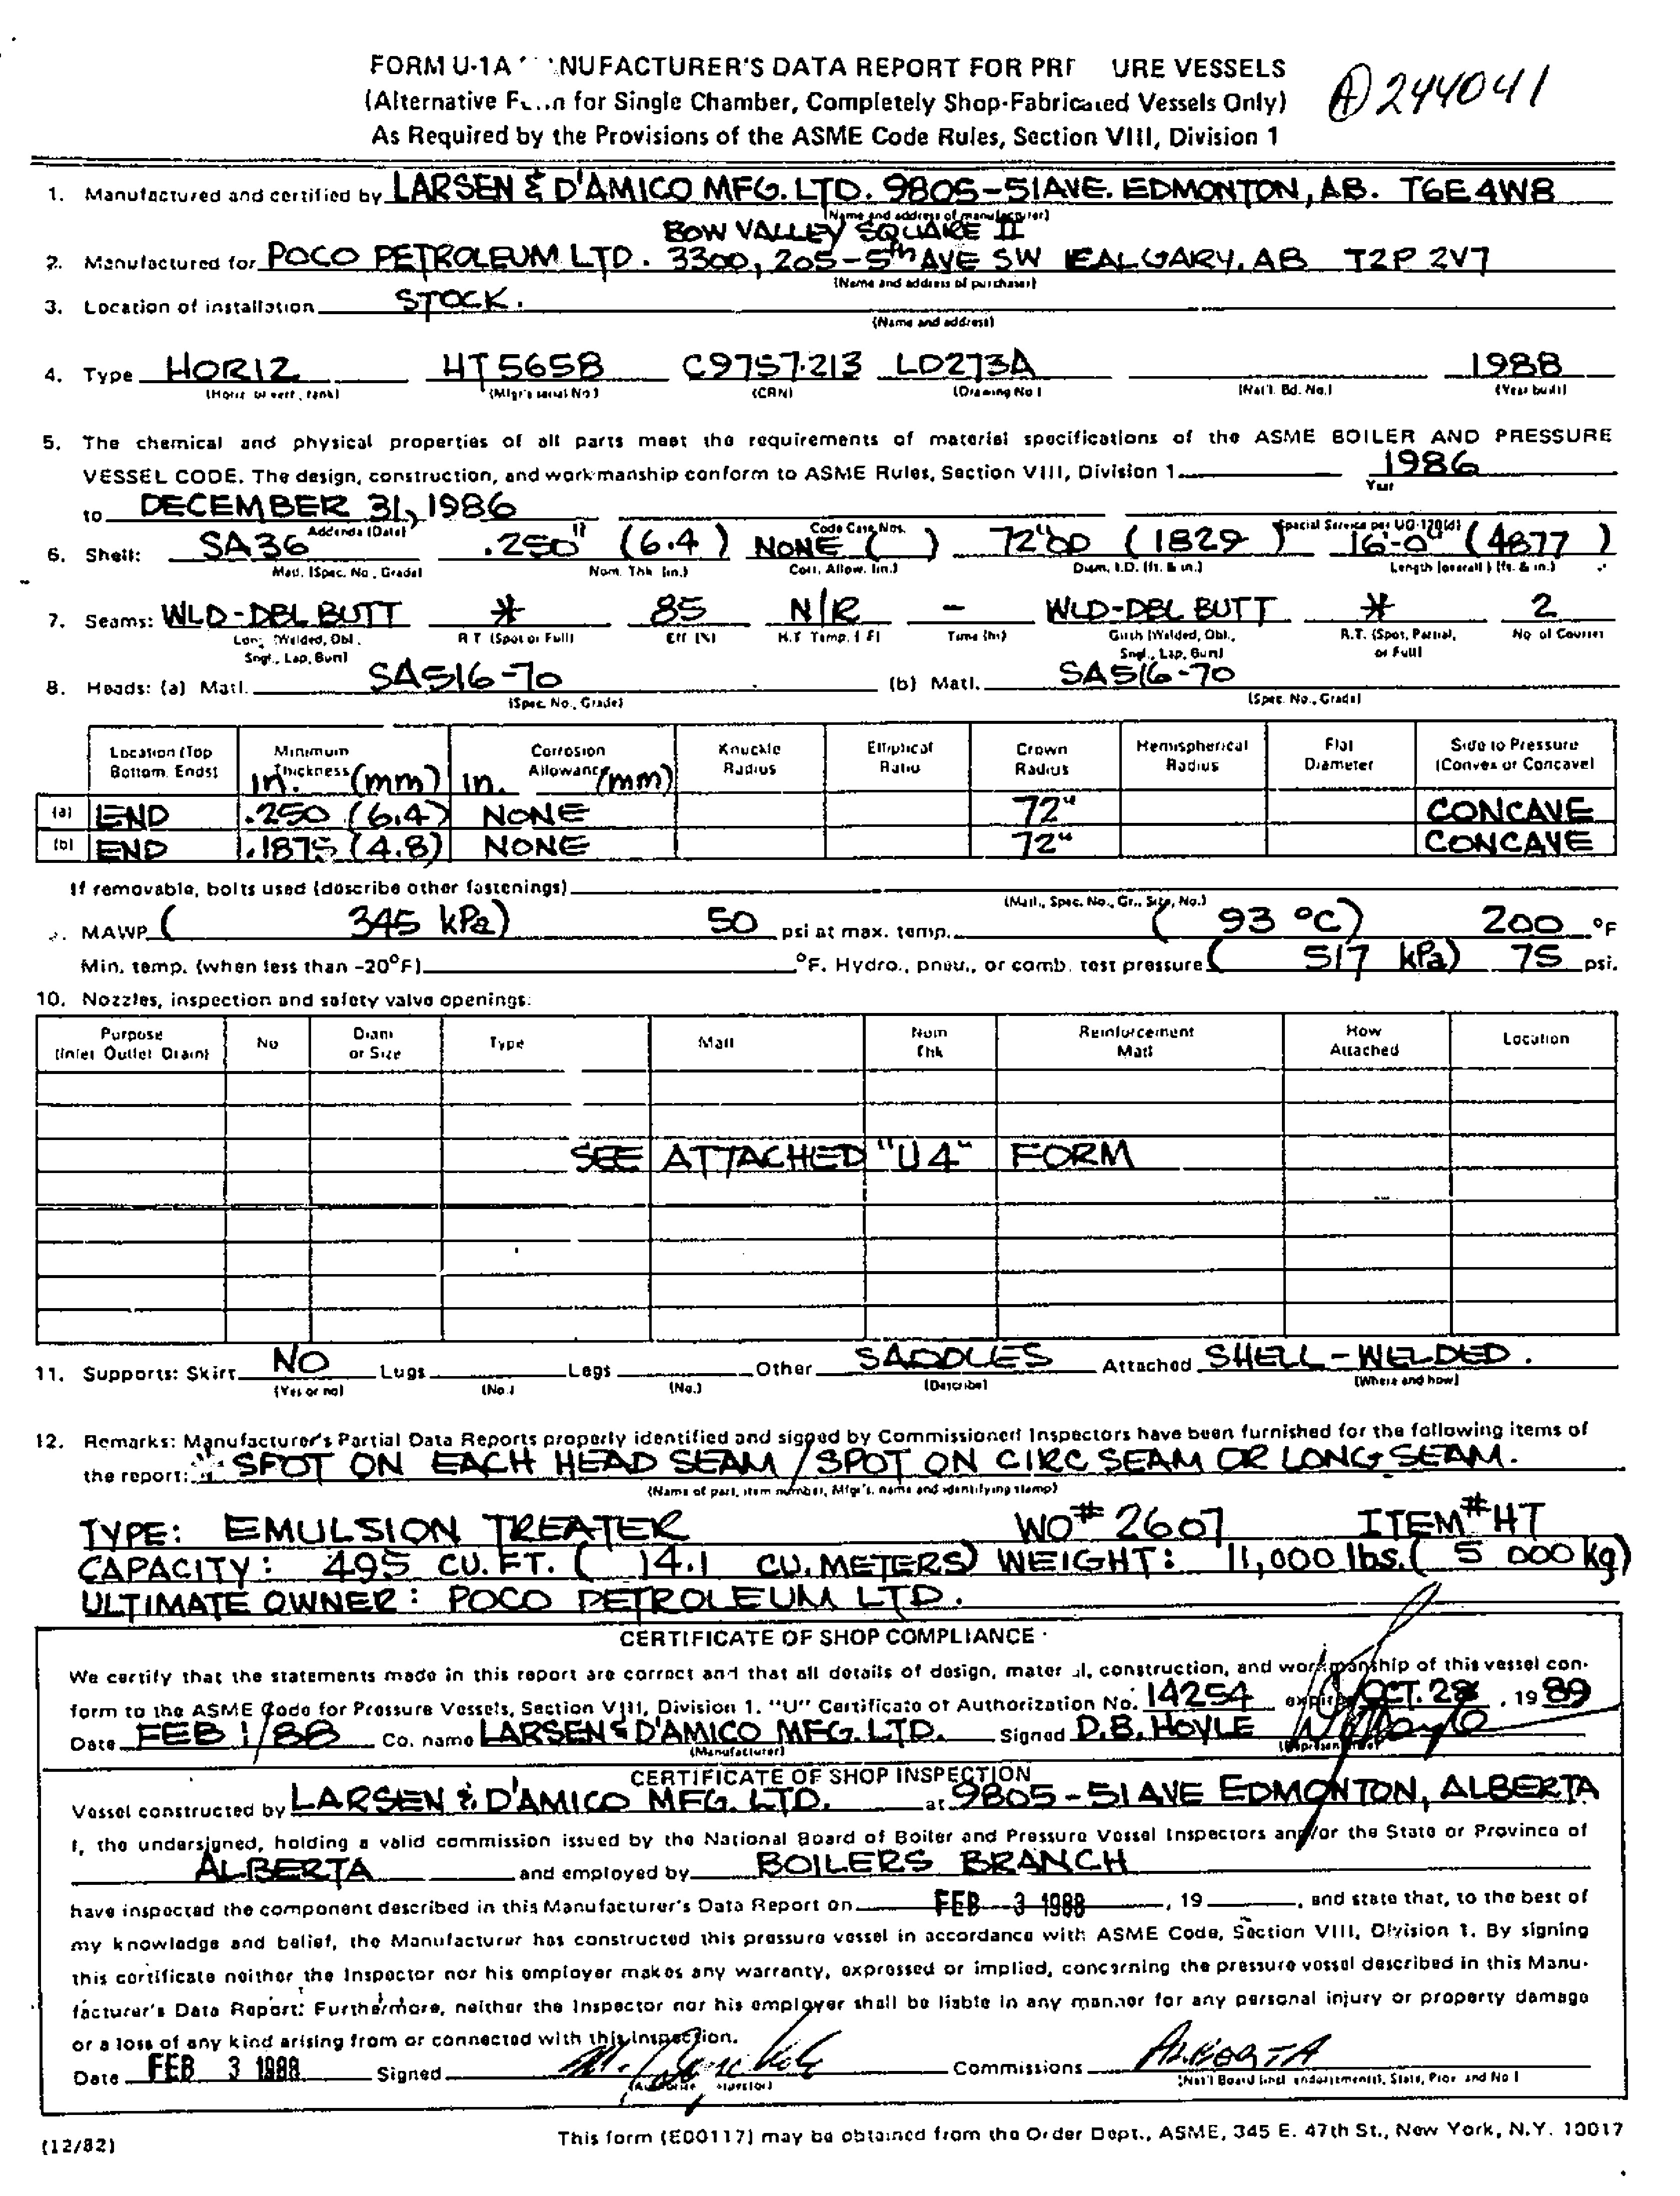 FORM U-1A NUFACTURER'S DATA REPORT FOR PRE URE VESSELS
(Alternative F...n for Single Chamber, Completely Shop-Fabricated Vessels Only)
As Required by the Provisions of the ASME Code Rules, Section VIII, Division 1
A 244041
1. Manufactured and certified by LARSEN & D'AMICO MFG. LTD. 9805-51AVE. EDMONTON, AB. T6E4W8
(Name and address of manufacturer)
BOW VALLEY SQUARE II
2. Manufactured for POCO PETROLEUM LTD. 3300, 205-5th AVE SW CALGARY, AB T2P 2V7
(Name and address of purchaser)
3. Location of installation STOCK.
(Name and address)
4. Type HORIZ HT5658 C9757.213 LD273A 1988
(Horiz. or vert., tank) (Mfgr's serial No.) (CRN) (Drawing No.) (Nat'l. Bd. No.) (Year built)
5. The chemical and physical properties of all parts meet the requirements of material specifications of the ASME BOILER AND PRESSURE
VESSEL CODE. The design, construction, and workmanship conform to ASME Rules, Section VIII, Division 1 1986
Year
to DECEMBER 31, 1986
Addenda (Date) Code Case Nos. Special Service per UG-120(d)
6. Shell: SA36 .250" (6.4) NONE ( ) 72"OD (1829) 16'-0" (4877)
Matl. (Spec. No., Grade) Nom. Thk. (in.) Corr. Allow. (in.) Diam. I.D. (ft. & in.) Length (overall) (ft. & in.)
7. Seams: WLD-DBL BUTT * 85 N/R - WLD-DBL BUTT * 2
Long. (Welded, Dbl., R.T. (Spot or Full) Eff. (%) H.T. Temp. ( F) Time (hr) Girth (Welded, Dbl., R.T. (Spot, Partial, No. of Courses
Sngl., Lap, Butt) Sngl., Lap, Butt) or Full)
8. Heads: (a) Matl. SA516-70 (b) Matl. SA516-70
(Spec. No., Grade) (Spec. No., Grade)
Location (Top Minimum Corrosion Knuckle Elliptical Crown Hemispherical Flat Side to Pressure
Bottom, Ends) Thickness Allowance Radius Ratio Radius Radius Diameter (Convex or Concave)
in. (mm) in. (mm)
(a) END .250 (6.4) NONE 72" CONCAVE
(b) END .1875 (4.8) NONE 72" CONCAVE
If removable, bolts used (describe other fastenings)
(Matl., Spec. No., Gr., Size, No.)
MAWP ( 345 kPa) 50 psi at max. temp. ( 93 °C) 200 °F
Min. temp. (when less than -20°F) °F. Hydro., pneu., or comb. test pressure ( 517 kPa) 75 psi.
10. Nozzles, inspection and safety valve openings:
Purpose Diam Nom Reinforcement How
(Inlet Outlet Drain) No or Size Type Matl Thk Matl Attached Location
SEE ATTACHED "U4" FORM
11. Supports: Skirt NO Lugs Legs Other SADDLES Attached SHELL-WELDED.
(Yes or no) (No.) (No.) (Describe) (Where and how)
12. Remarks: Manufacturer's Partial Data Reports properly identified and signed by Commissioned Inspectors have been furnished for the following items of
the report: * SPOT ON EACH HEAD SEAM/SPOT ON CIRC SEAM OR LONG SEAM.
(Name of part, item number, Mfgr's. name and identifying stamp)
TYPE: EMULSION TREATER WO# 2607 ITEM# HT
CAPACITY: 495 CU.FT. ( 14.1 CU.METERS) WEIGHT: 11,000 lbs.( 5 000 kg)
ULTIMATE OWNER: POCO PETROLEUM LTD.
CERTIFICATE OF SHOP COMPLIANCE
We certify that the statements made in this report are correct and that all details of design, mater al, construction, and workmanship of this vessel con-
form to the ASME Code for Pressure Vessels, Section VIII, Division 1. "U" Certificate of Authorization No. 14254 expires OCT. 28, 1989
Date FEB 1/88 Co. name LARSEN & D'AMICO MFG. LTD. Signed D.B. HOYLE
(Manufacturer)
CERTIFICATE OF SHOP INSPECTION
Vessel constructed by LARSEN & D'AMICO MFG. LTD. at 9805-51 AVE EDMONTON, ALBERTA
I, the undersigned, holding a valid commission issued by the National Board of Boiler and Pressure Vessel Inspectors and/or the State or Province of
ALBERTA and employed by BOILERS BRANCH
have inspected the component described in this Manufacturer's Data Report on FEB 3 1988, 19 , and state that, to the best of
my knowledge and belief, the Manufacturer has constructed this pressure vessel in accordance with ASME Code, Section VIII, Division 1. By signing
this certificate neither the Inspector nor his employer makes any warranty, expressed or implied, concerning the pressure vessel described in this Manu-
facturer's Data Report. Furthermore, neither the Inspector nor his employer shall be liable in any manner for any personal injury or property damage
or a loss of any kind arising from or connected with this inspection.
Date FEB 3 1988 Signed Commissions ALBERTA
(Nat'l Board (incl. endorsements), State, Prov. and No.)
(12/82) This form (E00117) may be obtained from the Order Dept., ASME, 345 E. 47th St., New York, N.Y. 10017